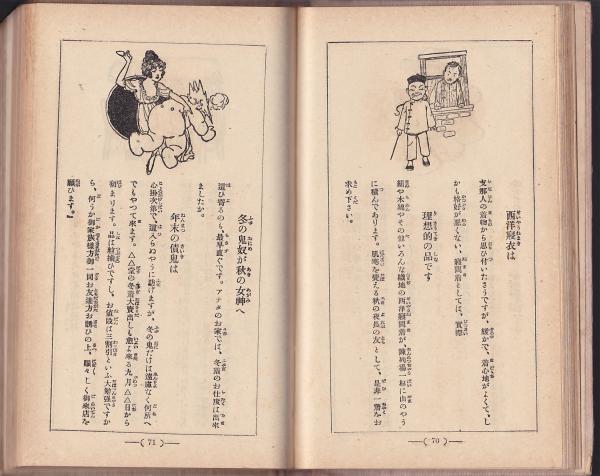 西洋寢衣は
支那人の着物から思ひ付いたさうですが、緩かで、着心地がよくて、し
かも格好が悪くない、寢間着としては、實際
理想的の品です
絹や木綿やその他いろんな織地の西洋寢間着が、陳列場一杯に山のやう
に積んであります。肌寒を覺える秋の夜長の友として、是非一着をお
求め下さい。
—( 70 )—
冬の鬼奴が秋の女脚へ
這ひ寄るのも、最早直ぐです。アナタのお家では、冬着のお仕度は出來
ましたか。
年末の債鬼は
心掛次第で、這入らぬやうに防げますが、冬の鬼だけは遠慮なく何所へ
でもやつて來ます。△△堂の冬着大賣出しも愈よ來る九月△△日から
始まります。品は粒揃ひですし、お値段は三割引といふ大勉強ですか
ら、何うか御家族樣方御一同お友達方お誘ひの上、賑々しく御來店を
願ひます。』
—( 71 )—